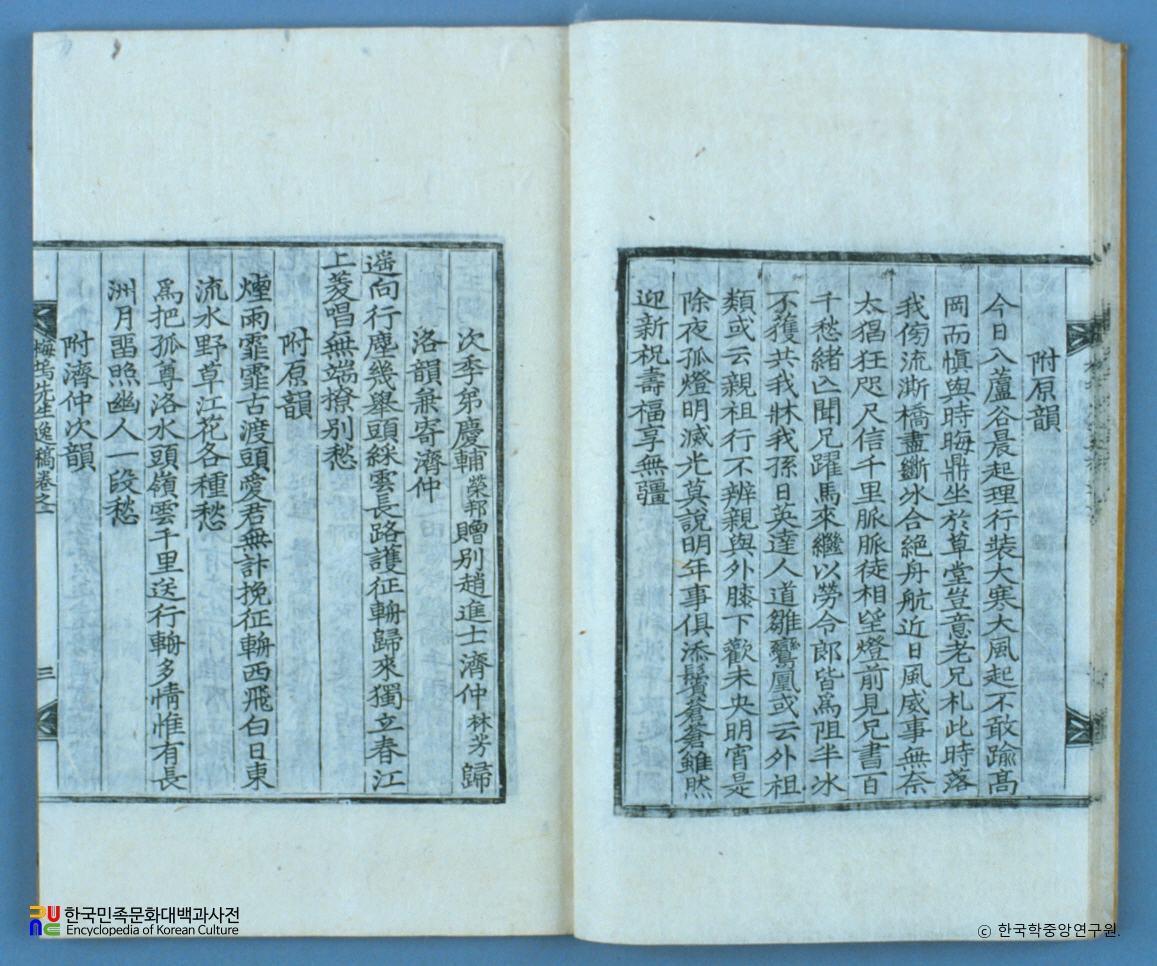 附原韻
今日入蘆谷晨起理行裝大寒大風起不敢踰高
岡而愼與時晦鼎坐於草堂豈意老兄札此時落
我傍流澌橋盡斷氷合絶舟航近日風威事無奈
太猖狂咫尺信千里脈脈徒相望燈前見兄書百
千愁緖亾聞兄躍馬來繼以勞令郎皆爲阻半氷
不獲共我牀我孫日英達人道雛鸞凰或云外祖
類或云親祖行不辨親與外膝下歡未央明宵是
除夜孤燈明滅光莫說明年事俱添鬢蒼蒼雖然
迎新祝壽福享無疆
次季弟慶輔榮邦贈別趙進士濟仲林芳歸
洛韻兼寄濟仲
遥向行塵幾擧頭綵雲長路護征輈歸來獨立春江
上菱唱無端撩別愁
附原韻
煙雨霏霏古渡頭愛君無計挽征輈西飛白日東
流水野草江花各種愁
爲把孤尊洛水頭嶺雲千里送行輈多情惟有長
洲月畱照幽人一段愁
附濟仲次韻
梅塢先生逸稿卷之二
三
한국민족문화대백과사전
Encyclopedia of Korean Culture
ⓒ 한국학중앙연구원.